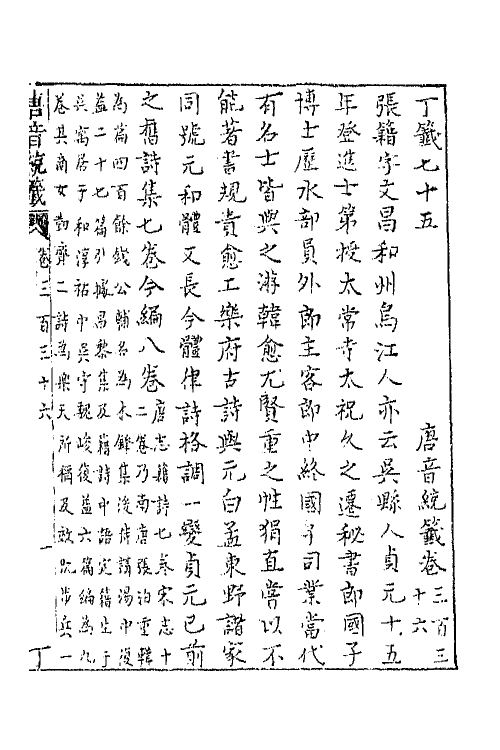 丁籤七十五
唐音統籤卷三百三十六
張籍字文昌和州烏江人亦云吳縣人貞元十五
年登進士第授太常寺太祝久之遷秘書郎國子
博士歷水部員外郎主客郎中終國子司業當代
有名士皆與之游韓愈尤賢重之性狷直嘗以不
能著書規責愈工樂府古詩與元白孟東野諸家
同號元和體又長今體律詩格調一變貞元已前
之舊詩集七卷今編八卷唐志籍詩七卷宋志十
二卷乃南唐張洎重輯
為篇四百餘錢公輔名為木鐸集後侍講湯中復
益二十七篇引據昌黎集及籍詩中語定籍生于
吳寓居于和淳祐中吳守魏峻復益六篇編為九
卷其商女勤齊二詩為樂天所稱及
步兵一
唐音統籤
卷三百三十六
一
丁